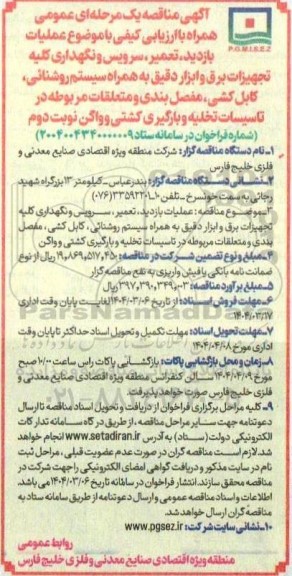 آگهی مناقصه یک مرحله‌ای عمومی
همراه با ارزیابی کیفی با موضوع عملیات
بازدید، تعمیر، سرویس و نگهداری کلیه
تجهیزات برق و ابزار دقیق به همراه سیستم روشنائی،
کابل کشی، مفصل بندی و متعلقات مربوطه در
تاسیسات تخلیه و بارگیری کشتی و واگن نوبت دوم
(شماره فراخوان در سامانه ستاد ۲۰۰۴۰۰۴۳۴۰۰۰۰۰۰۹)
P.G.M.I.S.E.Z
۱- نام دستگاه مناقصه گزار: شرکت منطقه ویژه اقتصادی صنایع معدنی و
فلزی خلیج فارس
۲- نشانی دستگاه مناقصه گزار: بندرعباس - کیلومتر ۱۳ بزرگراه شهید
رجائی به سمت خونسرخ - تلفن ۱۰-۳۳۵۹۲۲۰۱ (۰۷۶)
۳- موضوع مناقصه: عملیات بازدید، تعمیر، سرویس و نگهداری کلیه
تجهیزات برق و ابزار دقیق به همراه سیستم روشنائی، کابل کشی، مفصل
بندی و متعلقات مربوطه در تاسیسات تخلیه و بارگیری کشتی و واگن
۴- مبلغ و نوع تضمین شرکت در مناقصه: ۱۹،۸۶۹،۵۱۷،۴۵۰ ریال از نوع
ضمانت نامه بانکی یا فیش واریزی به نفع مناقصه گزار
۵- مبلغ برآورد مناقصه: ۳۹۷،۳۹۰،۳۴۹،۰۰۳ ریال
۶- مهلت فروش اسناد: از تاریخ ۱۴۰۴/۰۳/۰۶ لغایت پایان وقت اداری
۱۴۰۴/۰۳/۱۷
۷- مهلت تحویل اسناد: مهلت تکمیل و تحویل اسناد حداکثر تا پایان وقت
اداری مورخ ۱۴۰۴/۰۴/۰۸
۸- زمان و محل بازگشایی پاکات: بازگشائی پاکات راس ساعت ۱۰/۰۰ صبح
مورخ ۱۴۰۴/۰۴/۰۹ سالن کنفرانس منطقه ویژه اقتصادی صنایع معدنی و
فلزی خلیج فارس صورت خواهد پذیرفت.
۹- کلیه مراحل برگزاری فراخوان از دریافت و تحویل اسناد مناقصه تا ارسال
دعوتنامه جهت سایر مراحل مناقصه، از طریق درگاه سامانه تدارکات
الکترونیکی دولت (ستاد) به آدرس www.setadiran.ir انجام خواهد
شد. لازم است مناقصه گران در صورت عدم عضویت قبلی، مراحل ثبت
نام در سایت مذکور و دریافت گواهی امضای الکترونیکی را جهت شرکت در
مناقصه محقق سازند. انتشار فراخوان در سامانه تاریخ ۱۴۰۴/۰۳/۰۶ می باشد
اطلاعات و اسناد مناقصه عمومی و ارسال دعوتنامه از طریق سامانه ستاد به
مناقصه گران ارسال خواهد شد.
۱۰- نشانی سایت شرکت: www.pgsez.ir
روابط عمومی
منطقه ویژه اقتصادی صنایع معدنی و فلزی خلیج فارس